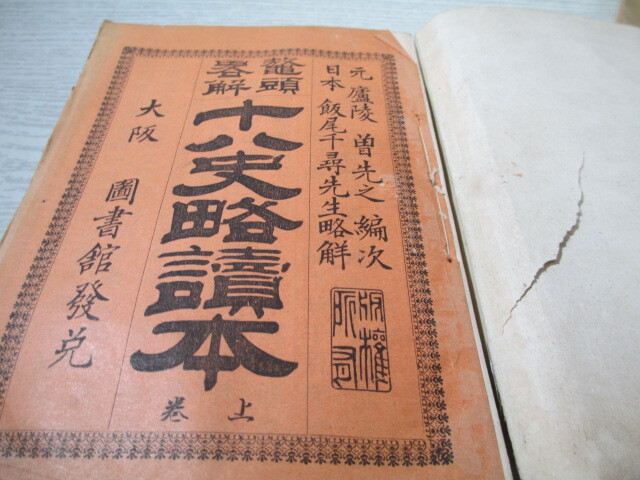 元 廬陵 曽先之 編次
日本 飯尾千尋先生略解
版權
所有
鼇頭
畧解
十八史略讀本
上卷
大阪 圖書館發兌